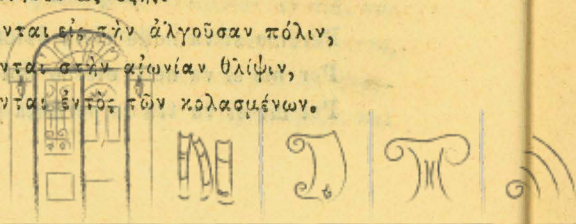 νται εἰς τὴν ἀλγοῦσαν πόλιν,
νται στὴν αἰωνίαν θλίψιν,
νται ἐντὸς τῶν κολασμένων.